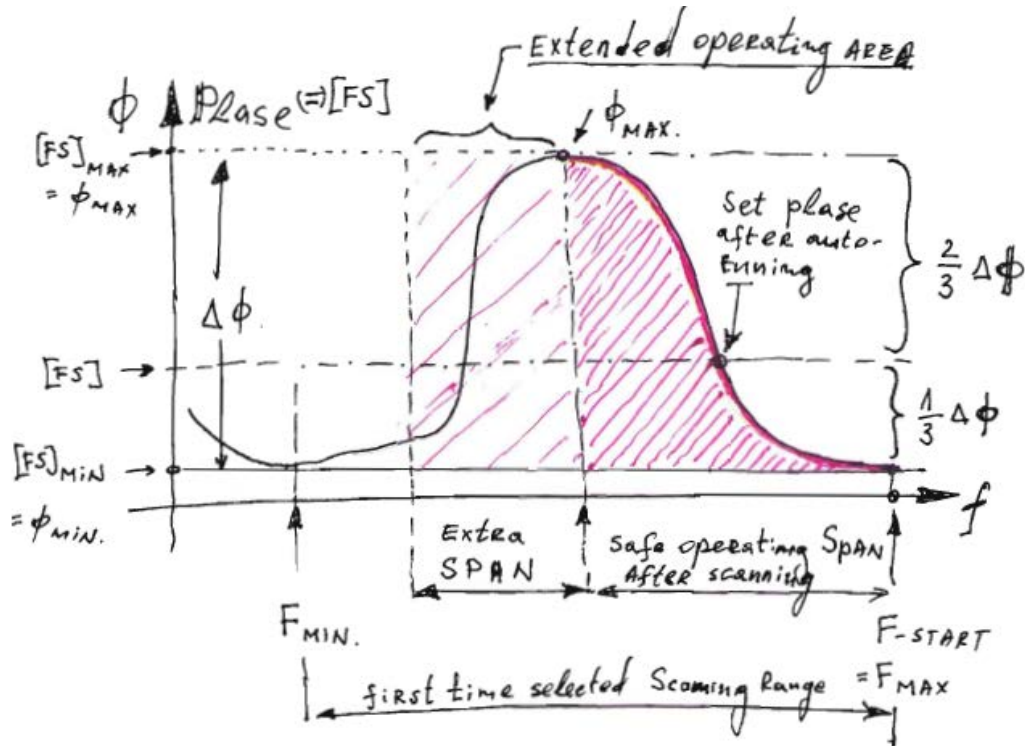 Extended operating AREA
ϕ Phase (=)[FS]
ϕMAX.
[FS]MAX
= ϕMAX
Set phase
after auto-
tunning
2/3 Δϕ
Δϕ.
[FS]
1/3 Δϕ
[FS]MIN
= ϕMIN.
f
Extra
SPAN
Safe operating SPAN
After scanning
FMIN.
F-START
= FMAX
first time selected Scanning Range